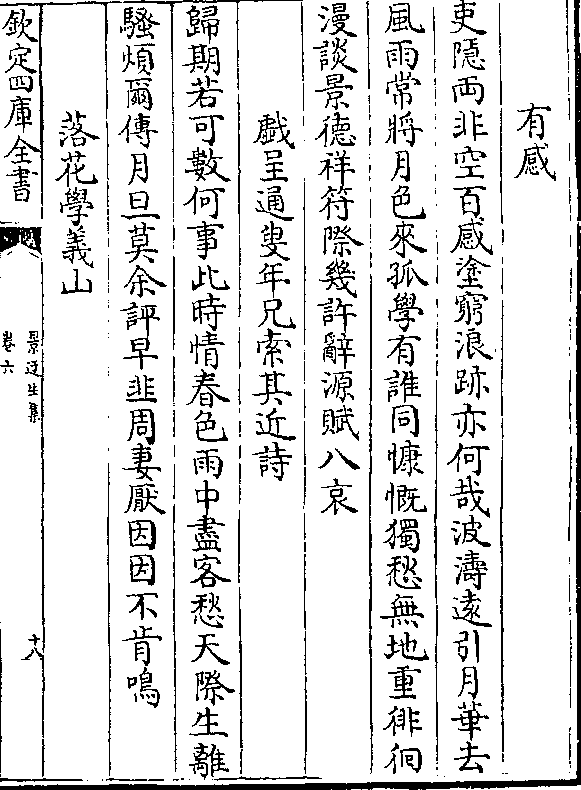 有感
吏隱兩非空百感塗窮浪跡亦何哉波濤遠引月華去
風雨常將月色來孤學有誰同慷慨獨愁無地重徘徊
漫談景德祥符際幾許辭源賦八哀
戲呈通叟年兄索其近詩
歸期若可數何事此時情春色雨中盡客愁天際生離
騷煩爾傳月旦莫余評早韭周妻厭因因不肯鳴
落花學義山
欽定四庫全書
景迂生集
卷六
十八